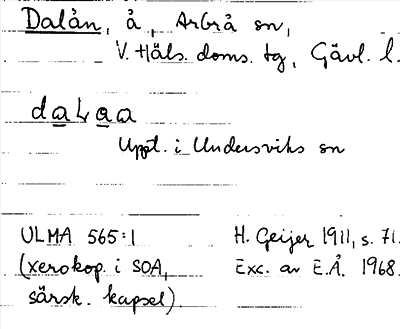 Dalån, å, Arbrå sn,
V. Häls. doms. tg, Gävl. l.
daLaa
Uppt. i Undersviks sn
ULMA 565:1 H. Geijer 1911, s. 71.
(xerokop. i SOA, Exc. av E.Å. 1968.
särsk. kapsel)